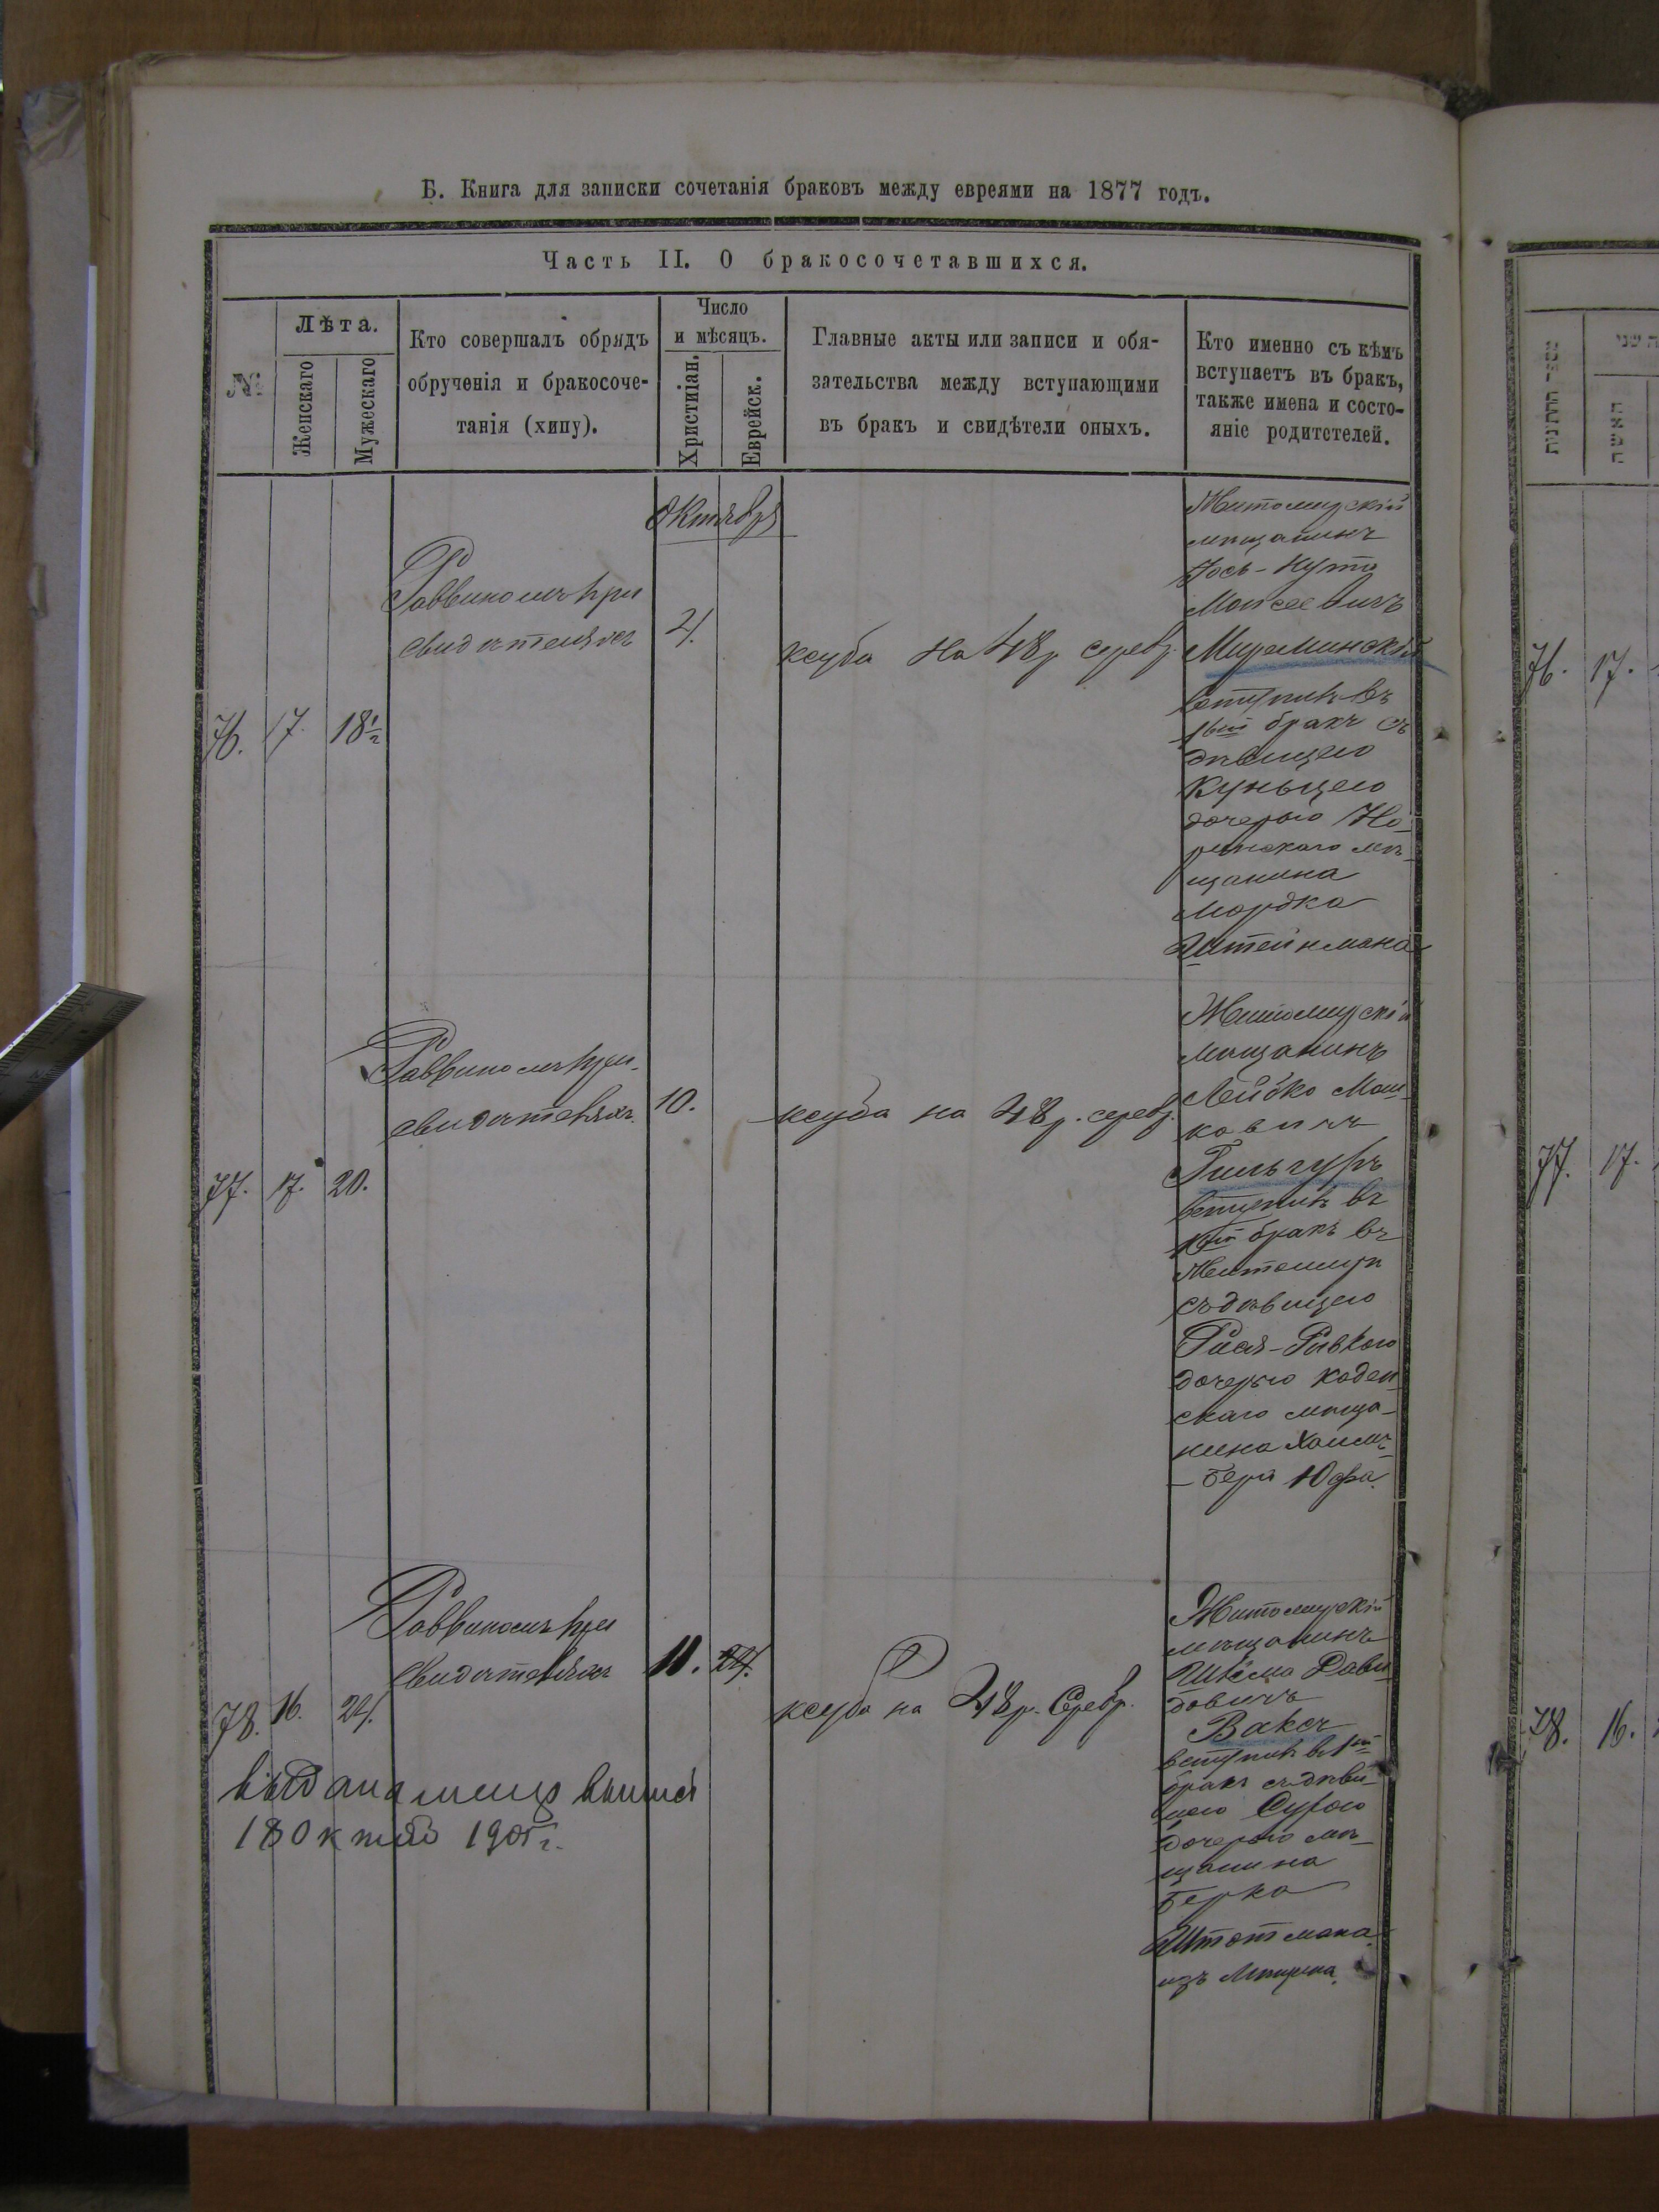 Б. Книга для записки сочетанія браковъ между евреями на 1877 годъ.
Часть II. О бракосочетавшихся.
№
Лѣта.
Женскаго
Мужескаго
Кто совершалъ обрядъ
обрученія и бракосоче-
танія (хипу).
Число
и мѣсяцъ.
Христиіан.
Еврейск.
Главные акты или записи и обя-
зательства между вступающими
въ бракъ и свидѣтели оныхъ.
Кто именно съ кѣмъ
вступаетъ въ бракъ,
также имена и состо-
яніе родитетелей.
Октября
76. 17. 18½
Раввиномъ при
свидѣтеляхъ
4.
ксуба на 48 р серебр.
Житомирскій
мѣщанинъ
Іось-Нута
Моисеевичъ
Мираминскій
вступилъ въ
1ый бракъ съ
дѣвицею
Куньцею
дочерью Но-
ринскаго мѣ-
щанина
Мордка
Штейнмана
77. 17. 20.
Раввиномъ при
свидѣтеляхъ
10.
ксуба на 48 р. серебр.
Житомирскій
мѣщанинъ
Лейбко Мош-
ковичъ
Гильгуръ
вступилъ въ
1ый бракъ въ
Житомирѣ
съ дѣвицею
Рися-Ривкою
дочерью Коден-
скаго мѣща-
нина Хаимъ-
-Бера Юфа.
78. 16. 24.
Раввиномъ при
свидѣтеляхъ
11. 24.
ксуба на 48 р. Серебр.
Житомирскій
мѣщанинъ
Шлёма Дави-
довичъ
Ваксъ
вступилъ въ 1ый
бракъ съ дѣви-
цею Сурою
дочерью мѣ-
щанина
Берка
Штотмана
изъ
выдана выпись
18 Октяб 1905 г.
מספר החתנות
האשה
76. 17.
77. 17.
78. 16.